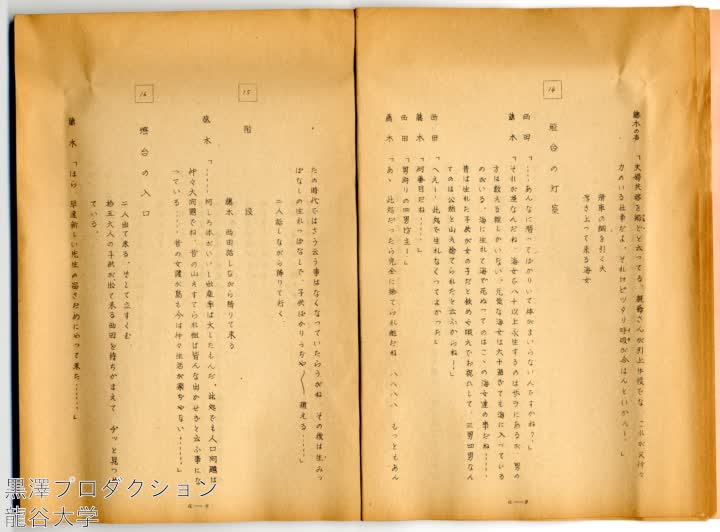 藤木の声 「夫婦夫婦を船どと云ってる 親爺さんが引上げ役でな これが又仲々
力のいる仕事だよ、それにピツタリ呼吸が合はんといかんし、」
滑車の綱を引く夫
浮き上って来る海女
14
燈台の灯室
西田 「……あんなに潜ってばかりいて体がまいらないんですかね?」
藤木 「それが逆なんだね、海女も八十以上長生するのは歩ラにあるが、男の
方は数える程しかいない、元気な海女は六十過ぎても海に入っている
のがいる、海に生れて海で死ぬってのはこゝの海女達の事だね……
昔は生れた子供が女の子だと赤めを喰んでお祝ひして、三男四男なん
てのは公然と山え捨てられたと云ふからね!」
西田 「へえー、此処で生れなくってよかった」
藤木 「何番目だね……」
西田 「男許りの四男坊主!」
藤木 「あゝ 此処だったら完全に捨てられ組だね ハハハハ もっともあん
a—8
たの時代ではさう云う事はなくなっていたらうがね その後は生みっ
ぱなしの生れっぱなしで、子供ばかりうぢや〱 増える……」
二人話しながら降りて行く、
15
階段
藤木、西田話しながら降りて来る
藤木 「……何しろ体がいいし出産率は大したもんだ、此処でも人口問題は
仲々大問題でね、昔の山えすてられ組は皆んな出かせぎと云ふ事にな
っている……昔の女護が島も今は仲々生活が楽ぢやない……」
16
燈台の入口
二人出て来る、そして立すくむ
拾五六人の子供が出て来る西田を待ちかまえて ヂッと見つめ
ている、
藤木 「ほら 早速新しい先生の姿さだめにやって来た……」
a—9
黒澤プロダクション
龍谷大学